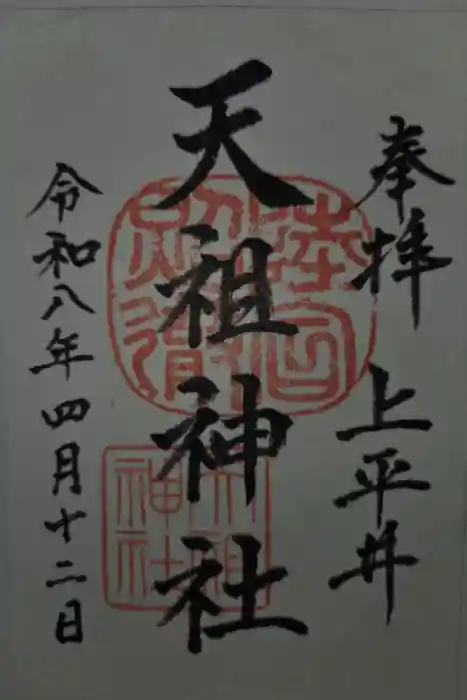 奉拝 上平井
天祖神社
令和八年四月十二日